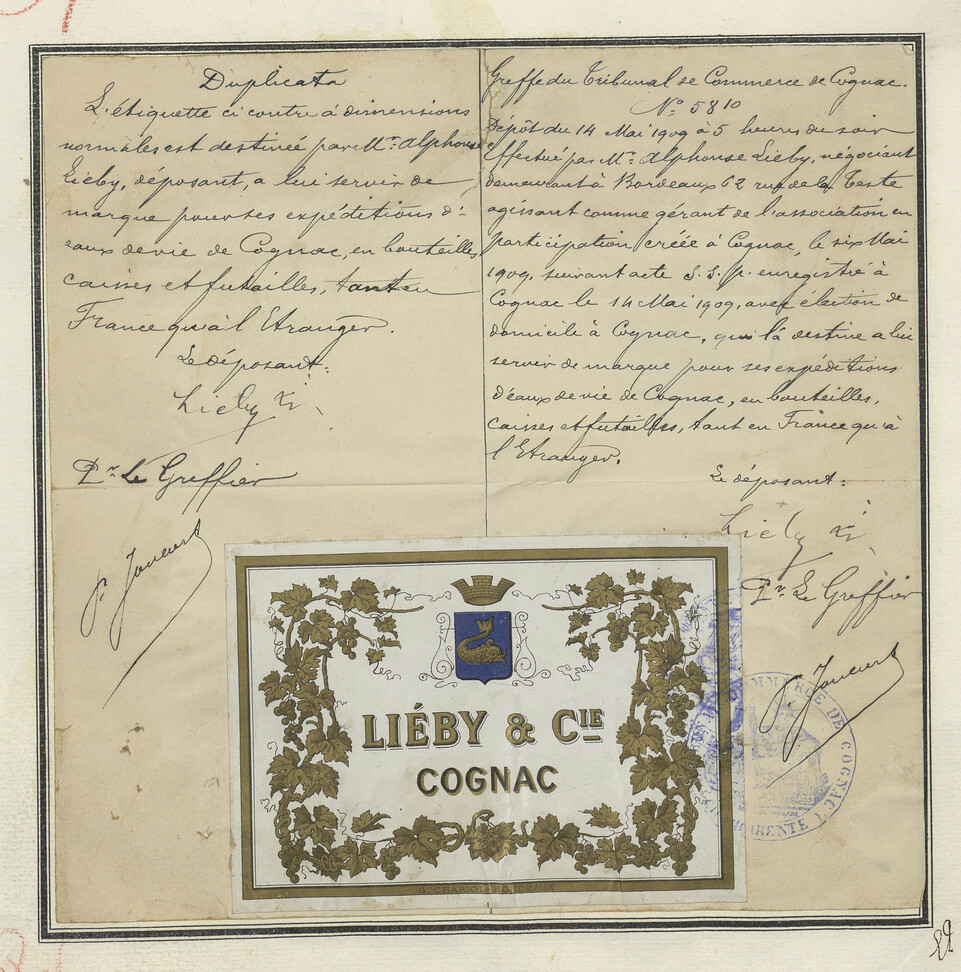 Duplicata
L'étiquette ci contre à dimensions
normales est destinée par Mr. Alphonse
Liéby, déposant, a lui servir de
marque pour ses expéditions d'-
eaux de vie de Cognac, en bouteilles,
caisses et futailles, tant en
France qu'à l'Etranger.
Le déposant:
Liéby
Pr Le Greffier
Greffe du Tribunal de Commerce de Cognac.
No 5810
Dépôt du 14 Mai 1909 à 5 heures du soir
Effectué par Mr. Alphonse Liéby, négociant
demeurant à Bordeaux 62 rue de la Teste
agissant comme gérant de l'association en
participation créée à Cognac, le six Mai
1909, suivant acte S.S.p. enregistré à
Cognac le 14 Mai 1909, avec élection de
domicile à Cognac, qui la destine a lui
servir de marque pour ses expéditions
d'eaux de vie de Cognac, en bouteilles,
caisses et futailles, tant en France qu'à
l'Etranger.
Le déposant:
Liéby
Pr. Le Greffier
LIÉBY & CIE
COGNAC
G. CHARIOL BORDEAUX
COMMERCE DE COGNAC
CHARENTE